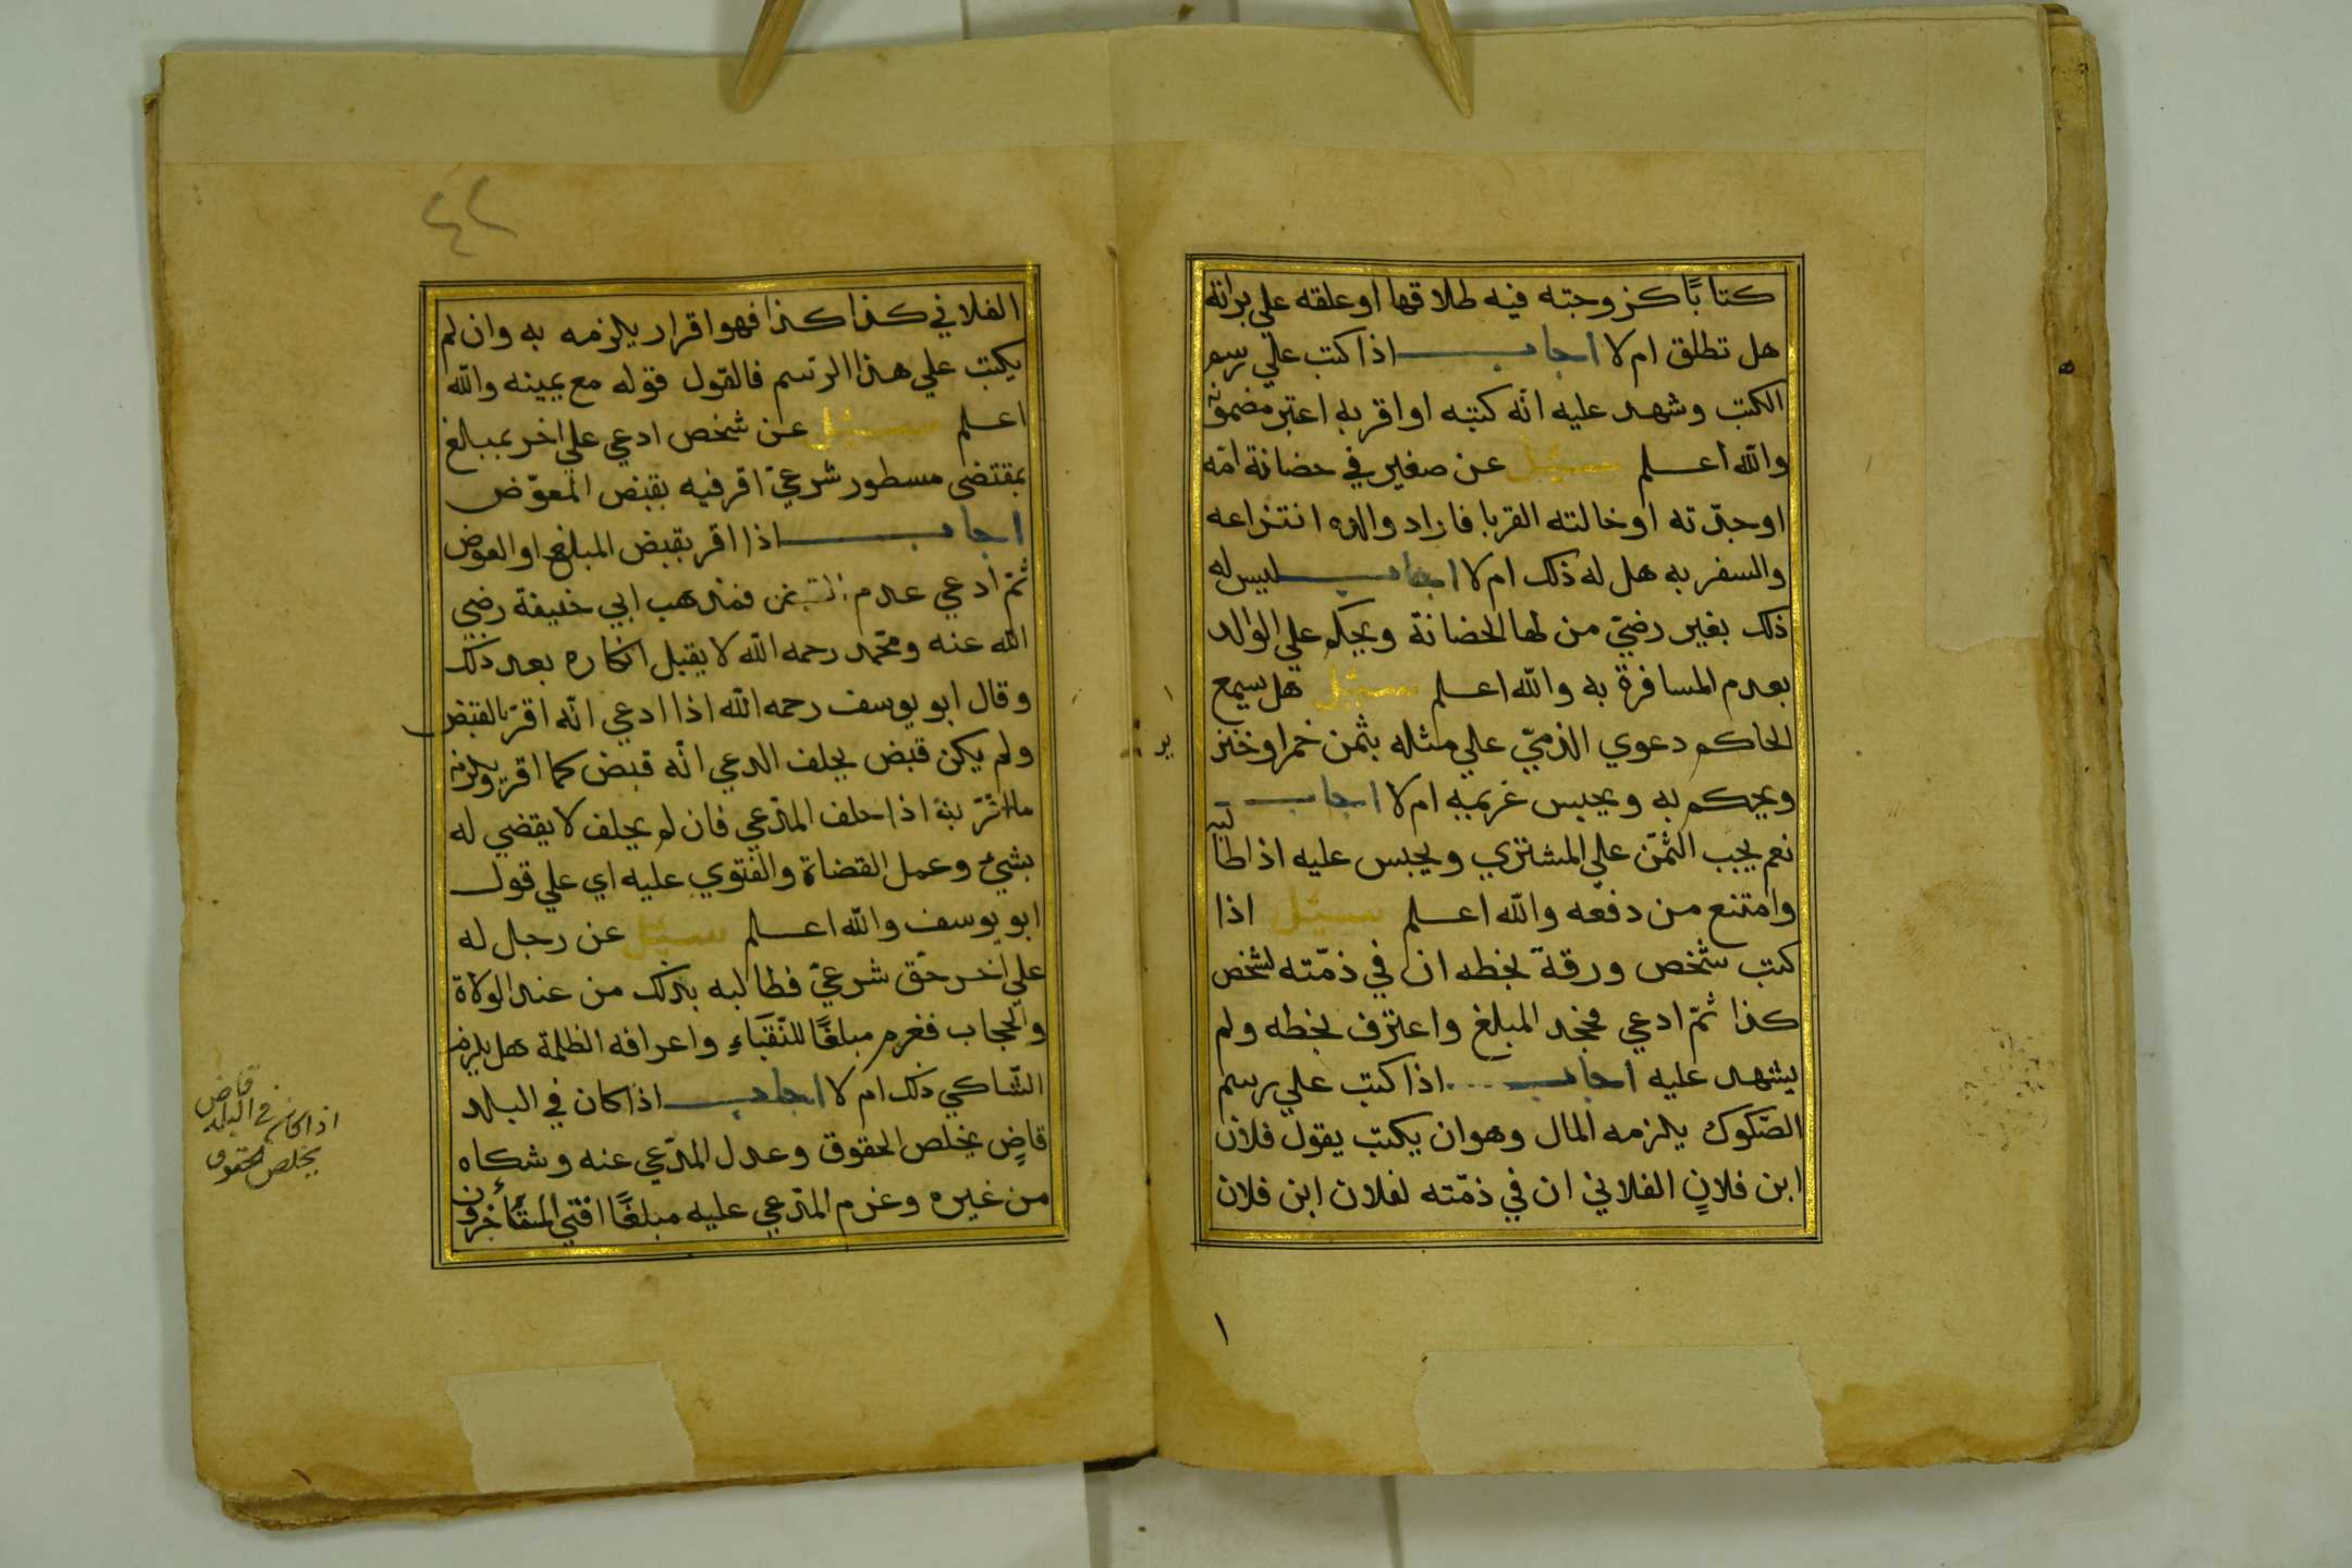 كتابًا كزوجته فيه طلاقها او علقه علي براته
هل تطلق ام لا اجاب اذا كتب علي رسم
الكتب وشهد عليه انّه كتبه او اقر به اعتبر مضمونه
والله اعلم سئل عن صغير في حضانة امّه
او جدّته او خالته القربا فاراد والده انتزاعه
والسفر به هل له ذلك ام لا اجاب ليس له
ذلك بغير رضيّ من لها الحضانة ويحكم علي الوالد
بعدم المسافرة به والله اعلم سئل هل يسمع
الحاكم دعوي الذميّ علي مثله بثمن خمر او خنز
ير
ويحكم به ويحبس غريمه ام لا اجاب
نعم يجب الثمن علي المشتري ويحبس عليه اذا طالبه
وامتنع من دفعه والله اعلم سئل اذا
كتب شخص ورقة بخطه ان في ذمّته لشخص
كذا ثمّ ادعي فجحد المبلغ واعترف بخطه ولم
يشهد عليه اجاب اذا كتب علي رسم
الصّكوك يلزمه المال وهو ان يكتب يقول فلان
ابن فلانٍ الفلاني ان في ذمّته لفلان ابن فلان
١
٤٢
الفلاني كذا كذا فهو اقرار يلزمه به وان لم
يكتب علي هذا الرّسم فالقول قوله مع يمينه والله
اعلم سئل عن شخص ادعي علي اخر بمبالغ
بمقتضى مسطور شرعيّ اقر فيه بقبض المعوّض
اجاب اذا اقر بقبض المبلغ او العوض
ثمّ ادعي عدم القبض فمذهب ابي حنيفة رضي
الله عنه ومحّمد رحمه الله لا يقبل انكاره بعد ذلك
وقال ابو يوسف رحمه الله اذا ادعي انّه اقرّ بالقبض
ولم يكن قبض يحلف المدعي انّه قبض كما اقرّ ويلزمه
ما اقرّ به اذا حلف المدّعي فان لم يحلف لا يقضي له
بشيءٍ وعمل القضاة والفتوي عليه اي علي قول
ابو يوسف والله اعلم سئل عن رجل له
علي اخر حقّ شرعيّ فطالبه بذلك من عند الولاة
والحجاب فغرم مبلغًا للنّقباءِ واعرافه الظلمة هل يلزم
الشّاكي ذلك ام لا اجاب اذا كان في البلد
قاضٍ يخلص الحقوق وعدل المدّعي عنه وشكاه
من غيره وغرم المدّعي عليه مبلغًا افتي المتأخرون
قاض
اذا كان في البلد
يخلص الحقوق